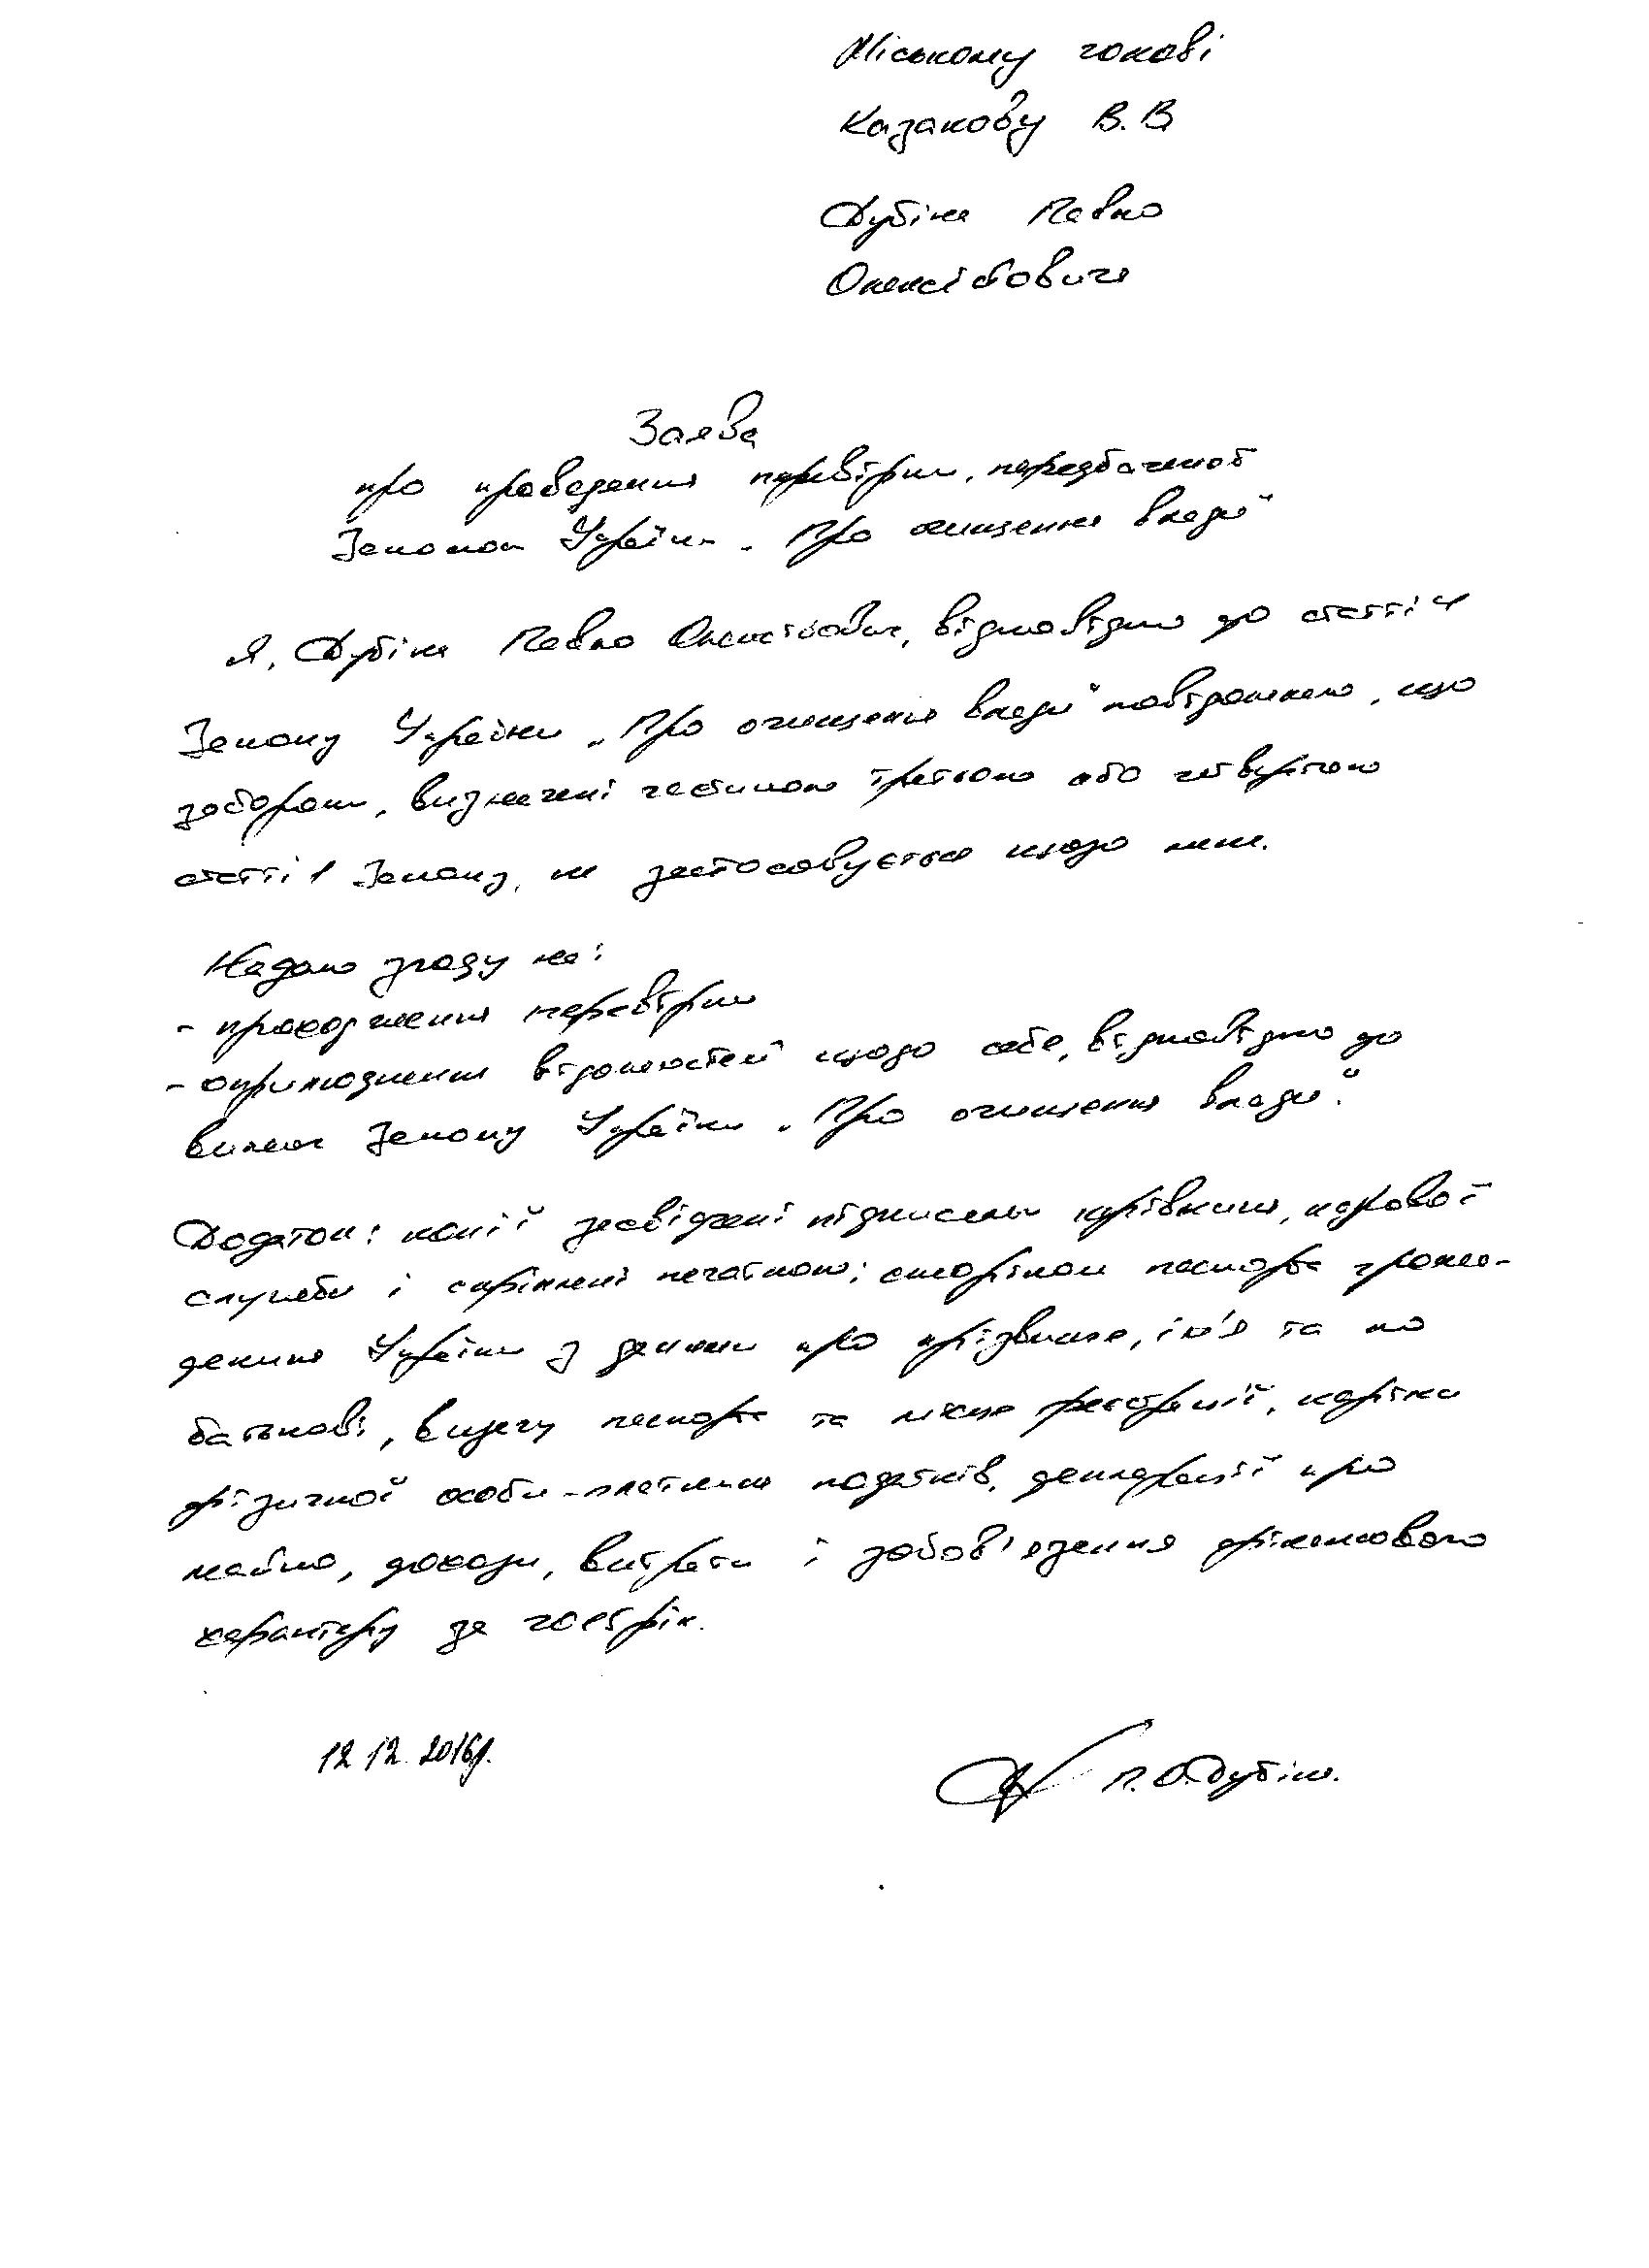 Міському голові
Казакову В.В
Дубіна Павло
Олексійович
Заява
про проведення перевірки, передбаченої
Законом України „Про очищення влади"
Я, Дубіна Павло Олексійович, відповідно до статті 4
Закону України „Про очищення влади" повідомляю, що
заборони, визначені частиною третьою або четвертою
статті 1 Закону, не застосовується щодо мене.
Надаю згоду на:
- проходження перевірки
- оприлюднення відомостей щодо себе, відповідно до
вимог Закону України „Про очищення влади".
Додаток: копії засвідчені підписом керівника, кадрової
служби і скріплені печаткою: сторінок паспорта грома-
дянина України з даними про прізвище, ім'я та по
батькові, видачу паспорта та місце реєстрації, картки
фізичної особи-платника податків, декларації про
майно, доходи, витрати і зобов'язання фінансового
характеру за 2015 рік.
12.12.2016р.
П.О.Дубіна.